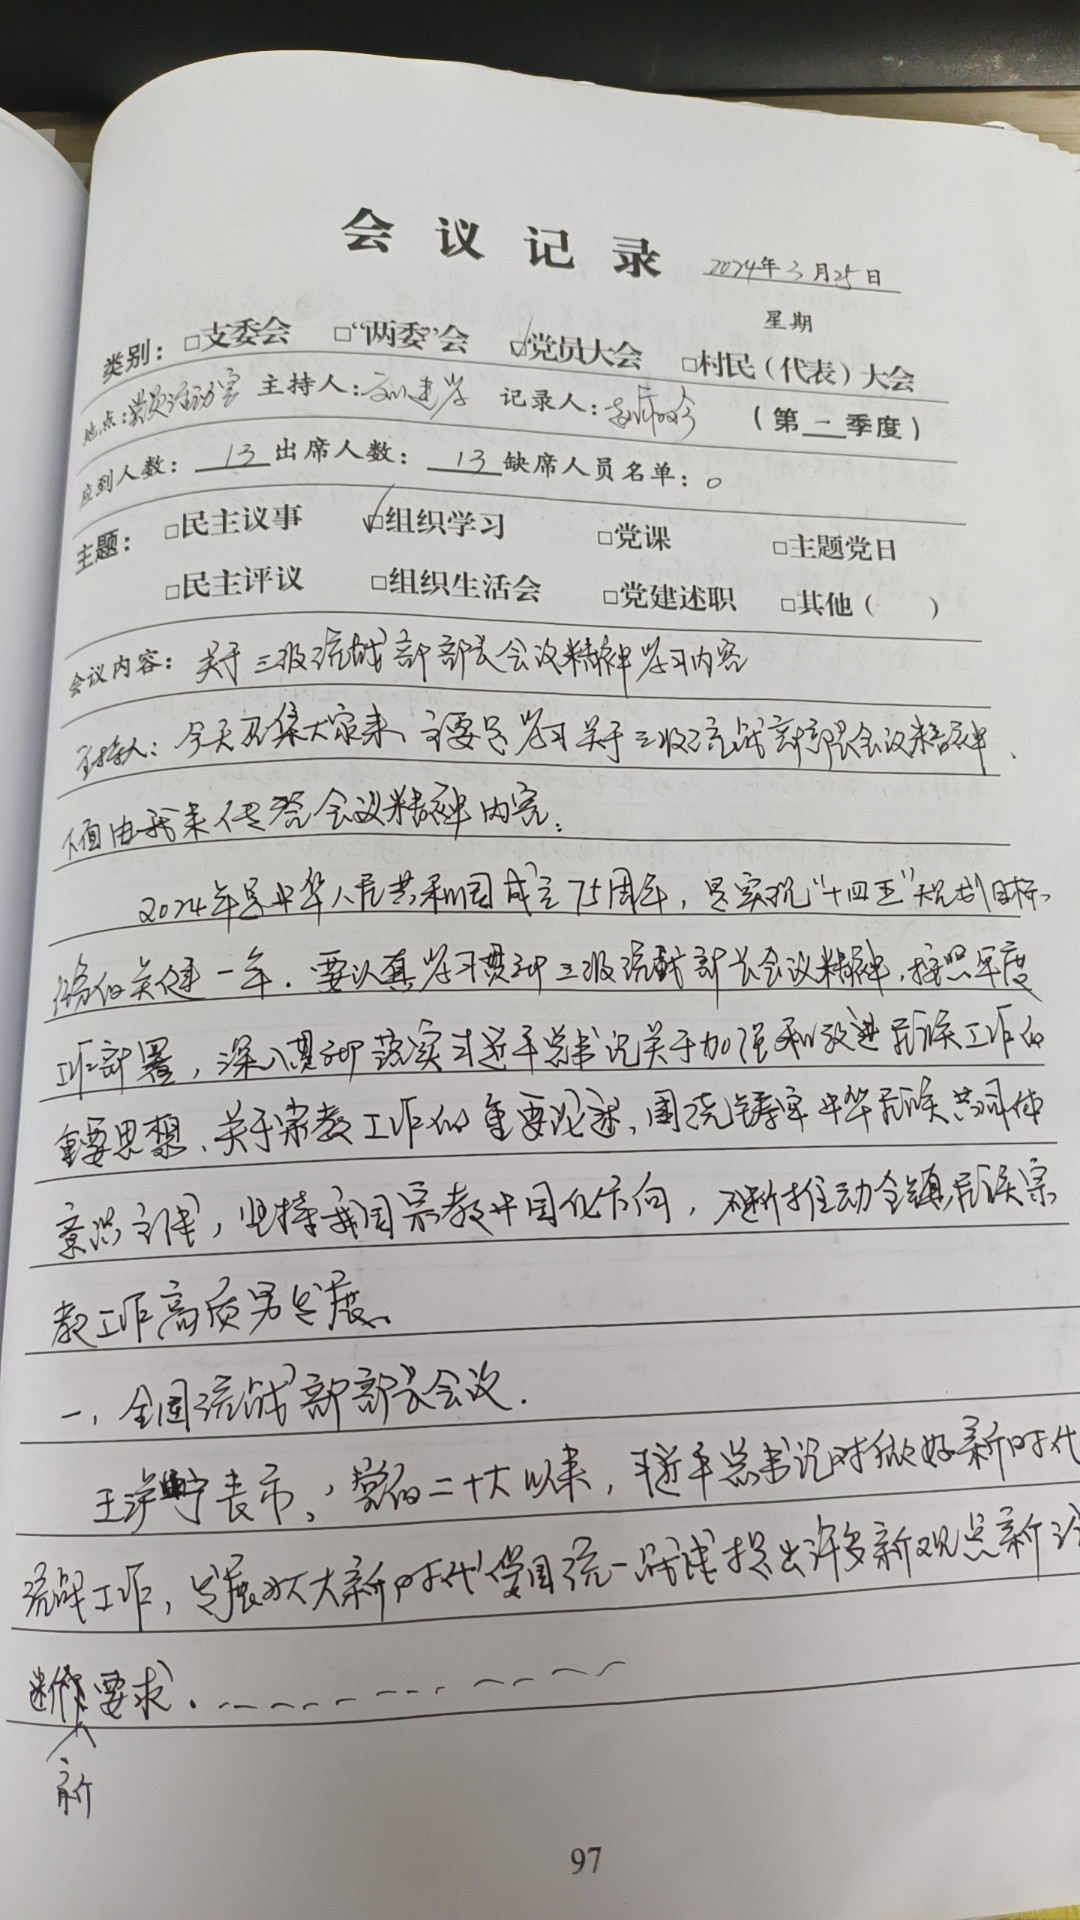 会议记录 2024年3月25日
星期
类别：□支委会 □“两委”会 ☑党员大会 □村民（代表）大会
地点：党员活动室 主持人：刘建学 记录人： （第一季度）
应到人数：13 出席人数：13 缺席人员名单：0
主题：□民主议事 ☑组织学习 □党课 □主题党日
□民主评议 □组织生活会 □党建述职 □其他（ ）
会议内容：关于三级统战部部长会议精神学习内容
主持人：今天召集大家来、主要是学习关于三级统战部部长会议精神．
下面由我来传达会议精神内容：
2024年是中华人民共和国成立75周年，是实现“十四五”规划目标、
任务的关键一年．要认真学习贯彻三级统战部长会议精神，按照年度
工作部署，深入贯彻落实习近平总书记关于加强和改进民族工作的
重要思想、关于宗教工作的重要论述，围绕铸牢中华民族共同体
意识主线，坚持我国宗教中国化方向，不断推动全镇民族宗
教工作高质量发展。
一，全国统战部部长会议．
王沪宁表示，党的二十大以来，习近平总书记对做好新时代
统战工作，发展壮大新时代爱国统一战线提出许多新观点新论
断新要求．
新
97